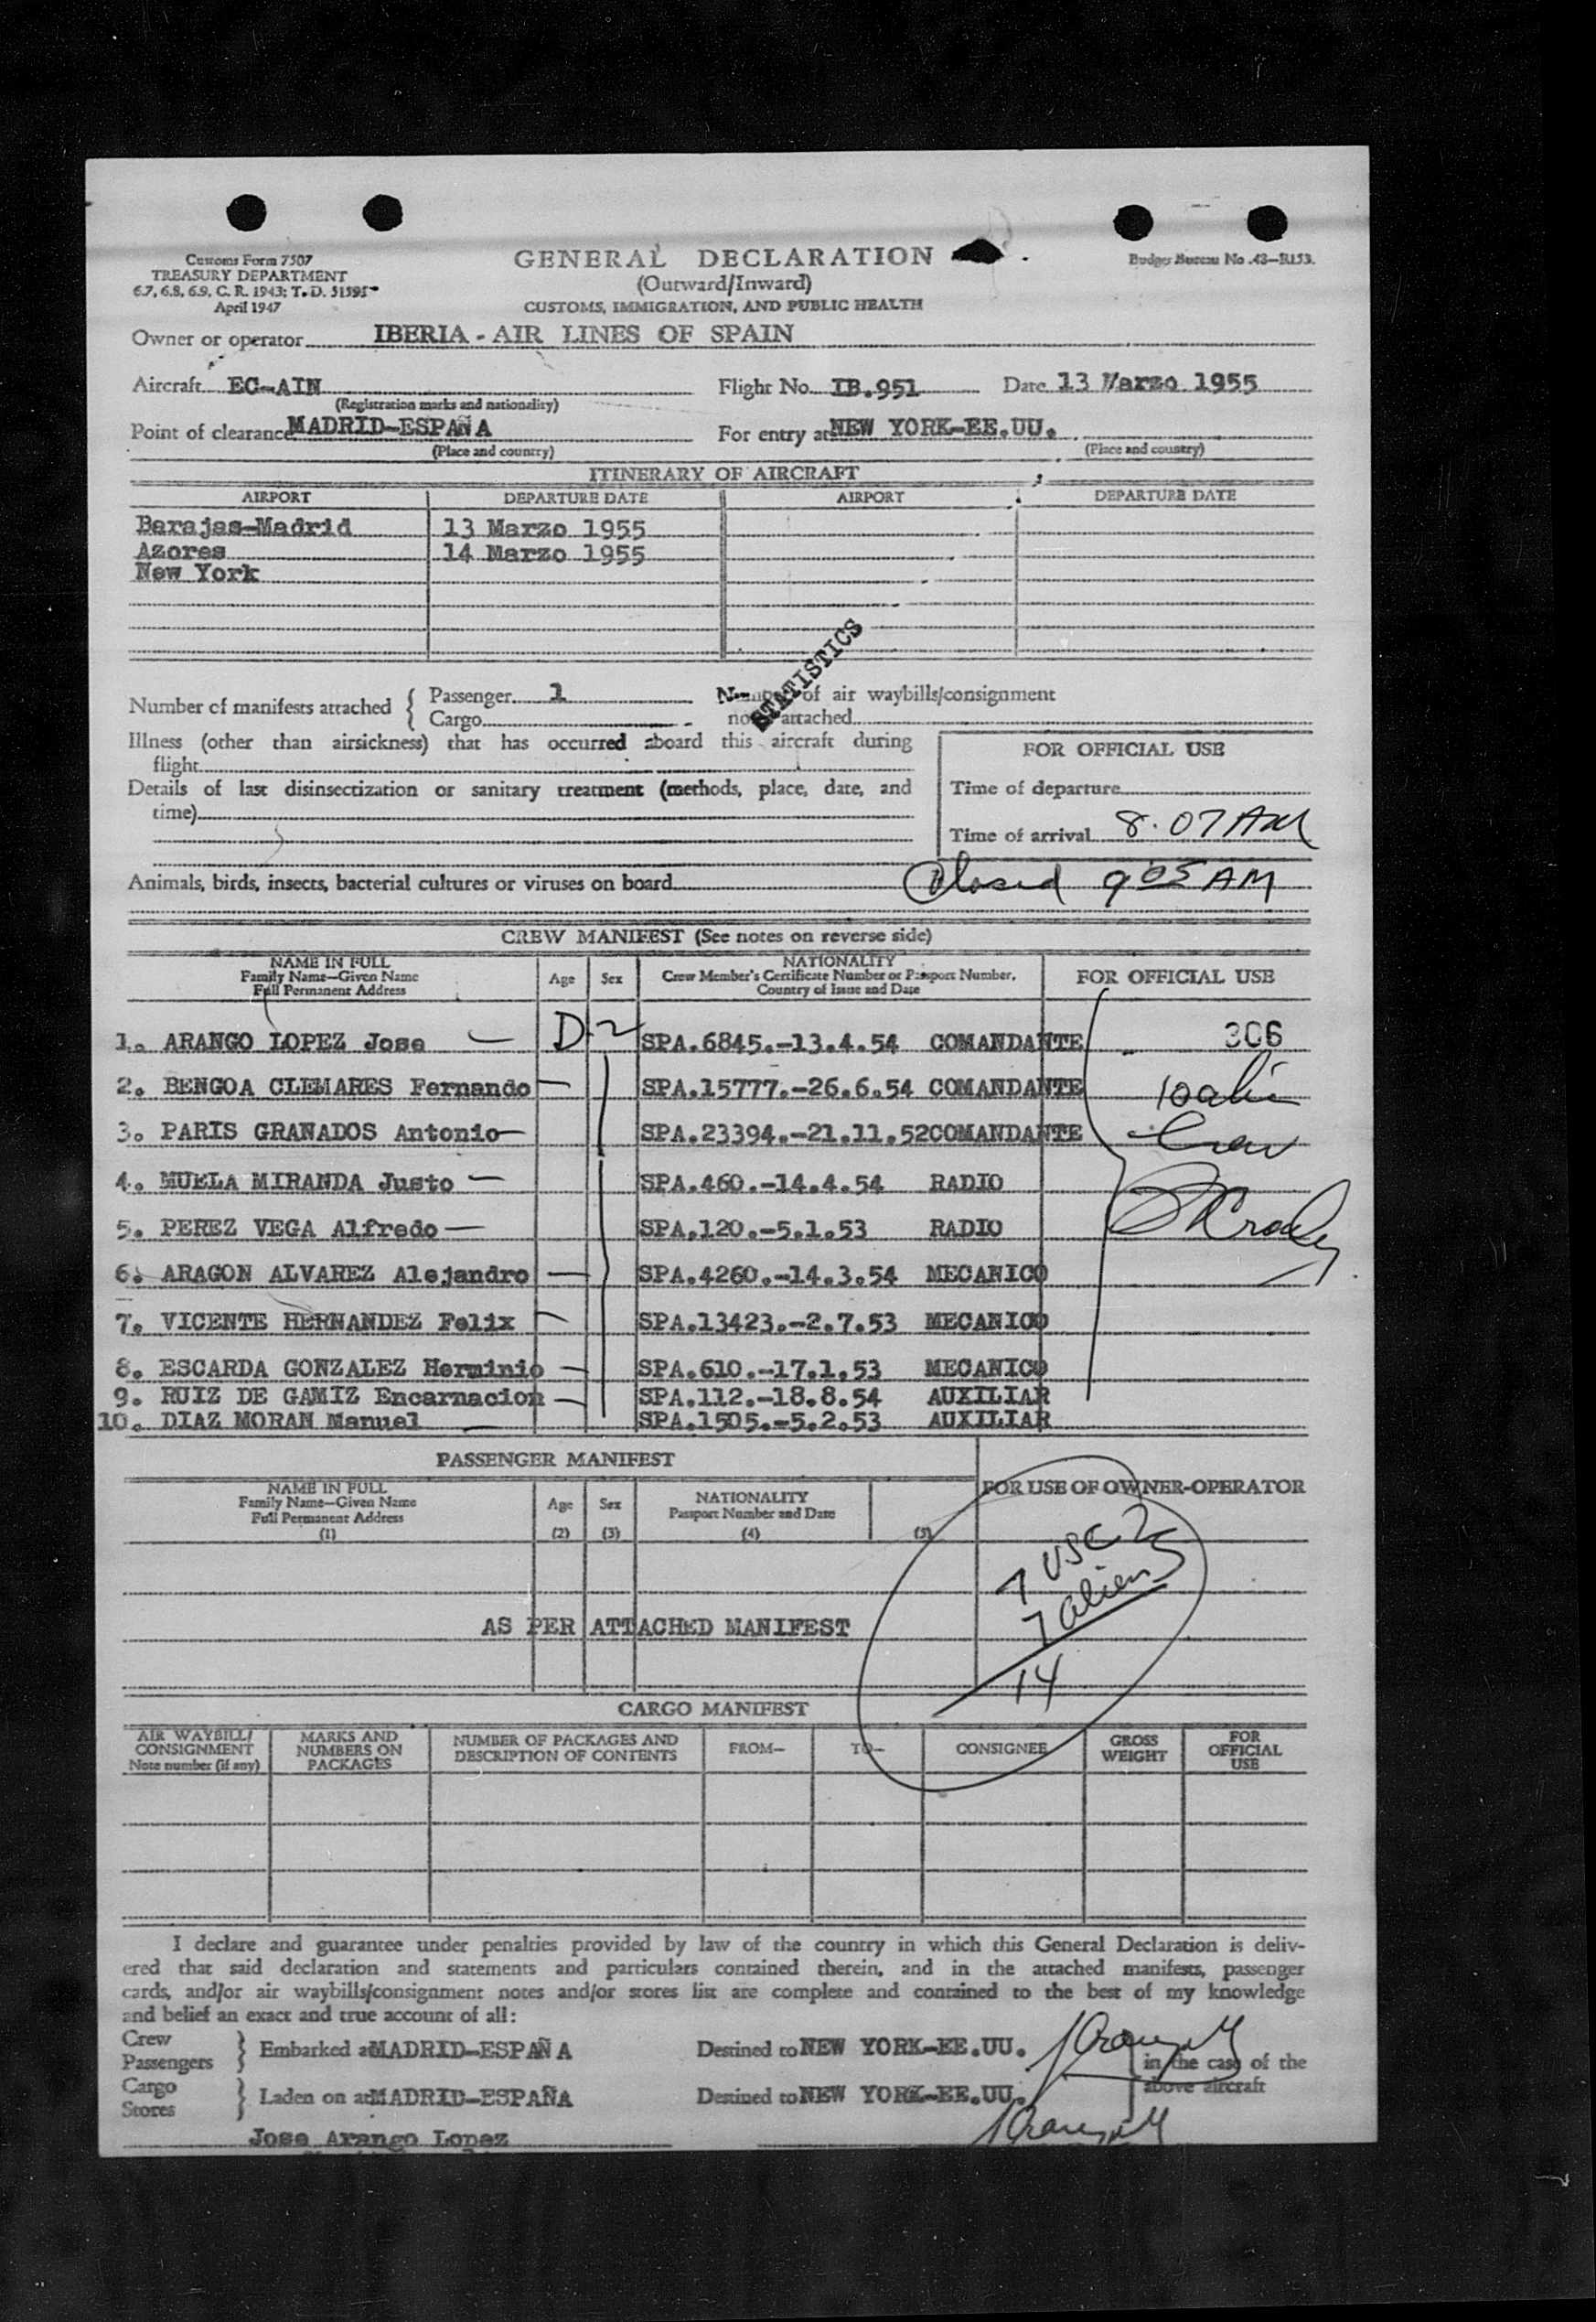 Customs Form 7507
TREASURY DEPARTMENT
6.7, 6.8, 6.9, C. R. 1943; T. D. 51595
April 1947
GENERAL DECLARATION
(Outward/Inward)
CUSTOMS, IMMIGRATION, AND PUBLIC HEALTH
Budget Bureau No. 43—R153.
Owner or operator IBERIA - AIR LINES OF SPAIN
Aircraft EC-AIN Flight No. IB.951 Date 13 Marzo 1955
(Registration marks and nationality)
Point of clearance MADRID-ESPAÑA For entry at NEW YORK-EE.UU.
(Place and country) (Place and country)
ITINERARY OF AIRCRAFT
AIRPORT DEPARTURE DATE AIRPORT DEPARTURE DATE
Barajas-Madrid 13 Marzo 1955
Azores 14 Marzo 1955
New York
STATISTICS
Number of manifests attached { Passenger 1 of air waybills/consignment
Cargo attached
Illness (other than airsickness) that has occurred aboard this aircraft during
flight
FOR OFFICIAL USE
Details of last disinsectization or sanitary treatment (methods, place, date, and
time)
Time of departure
Time of arrival 8.07 AM
Animals, birds, insects, bacterial cultures or viruses on board
Closed 9 05 AM
CREW MANIFEST (See notes on reverse side)
NAME IN FULL
Family Name—Given Name
Full Permanent Address
Age
Sex
NATIONALITY
Crew Member's Certificate Number or Passport Number,
Country of Issue and Date
FOR OFFICIAL USE
1. ARANGO LOPEZ Jose — D-2 SPA.6845.-13.4.54 COMANDANTE 306
2. BENGOA CLEMARES Fernando — SPA.15777.-26.6.54 COMANDANTE 10 alien
3. PARIS GRANADOS Antonio — SPA.23394.-21.11.52COMANDANTE Crew
4. MUELA MIRANDA Justo — SPA.460.-14.4.54 RADIO
5. PEREZ VEGA Alfredo — SPA.120.-5.1.53 RADIO
6. ARAGON ALVAREZ Alejandro — SPA.4260.-14.3.54 MECANICO
7. VICENTE HERNANDEZ Felix — SPA.13423.-2.7.53 MECANICO
8. ESCARDA GONZALEZ Herminio — SPA.610.-17.1.53 MECANICO
9. RUIZ DE GAMIZ Encarnacion — SPA.112.-18.8.54 AUXILIAR
10. DIAZ MORAN Manuel — SPA.1505.-5.2.53 AUXILIAR
PASSENGER MANIFEST
NAME IN FULL
Family Name—Given Name
Full Permanent Address
(1)
Age
(2)
Sex
(3)
NATIONALITY
Passport Number and Date
(4)
(5)
FOR USE OF OWNER-OPERATOR
7 USC
7 alien
14
AS PER ATTACHED MANIFEST
CARGO MANIFEST
AIR WAYBILL/
CONSIGNMENT
Note number (if any)
MARKS AND
NUMBERS ON
PACKAGES
NUMBER OF PACKAGES AND
DESCRIPTION OF CONTENTS
FROM—
TO—
CONSIGNEE
GROSS
WEIGHT
FOR
OFFICIAL
USE
I declare and guarantee under penalties provided by law of the country in which this General Declaration is deliv-
ered that said declaration and statements and particulars contained therein, and in the attached manifests, passenger
cards, and/or air waybills/consignment notes and/or stores list are complete and contained to the best of my knowledge
and belief an exact and true account of all:
Crew
Passengers } Embarked at MADRID-ESPAÑA Destined to NEW YORK-EE.UU.
Cargo
Stores } Laden on at MADRID-ESPAÑA Destined to NEW YORK-EE.UU.
in the case of the
above aircraft
Jose Arango Lopez